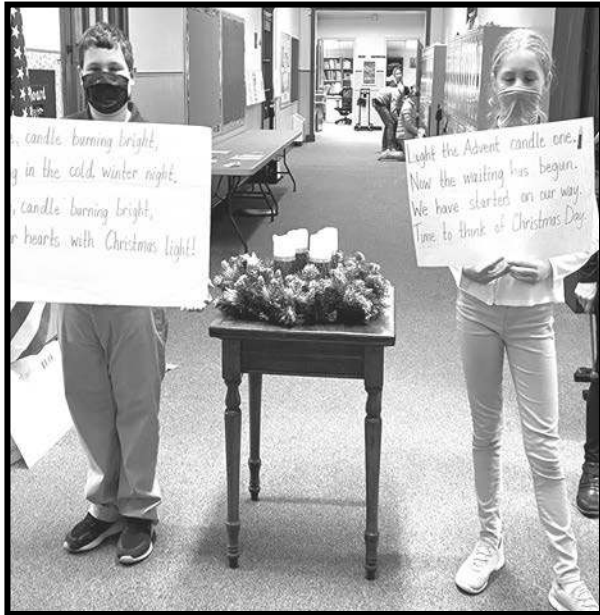 , candle burning bright,
g in the cold winter night.
, candle burning bright,
r hearts with Christmas light!
Light the Advent candle one.
Now the waiting has begun.
We have started on our way.
Time to think of Christmas Day.